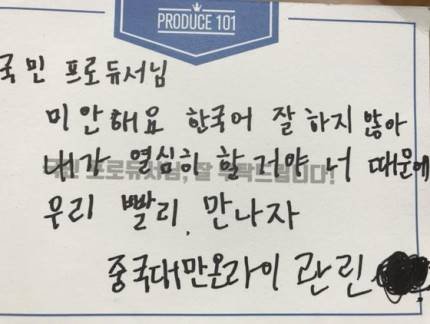 PRODUCE 101
국민 프로듀서님
미안해요 한국어 잘 하지 않아
내가 열심히 할 거야 너 때문에
프로듀서님, 잘 부탁드립니다!
우리 빨리. 만나자
중국대만온라이 관린